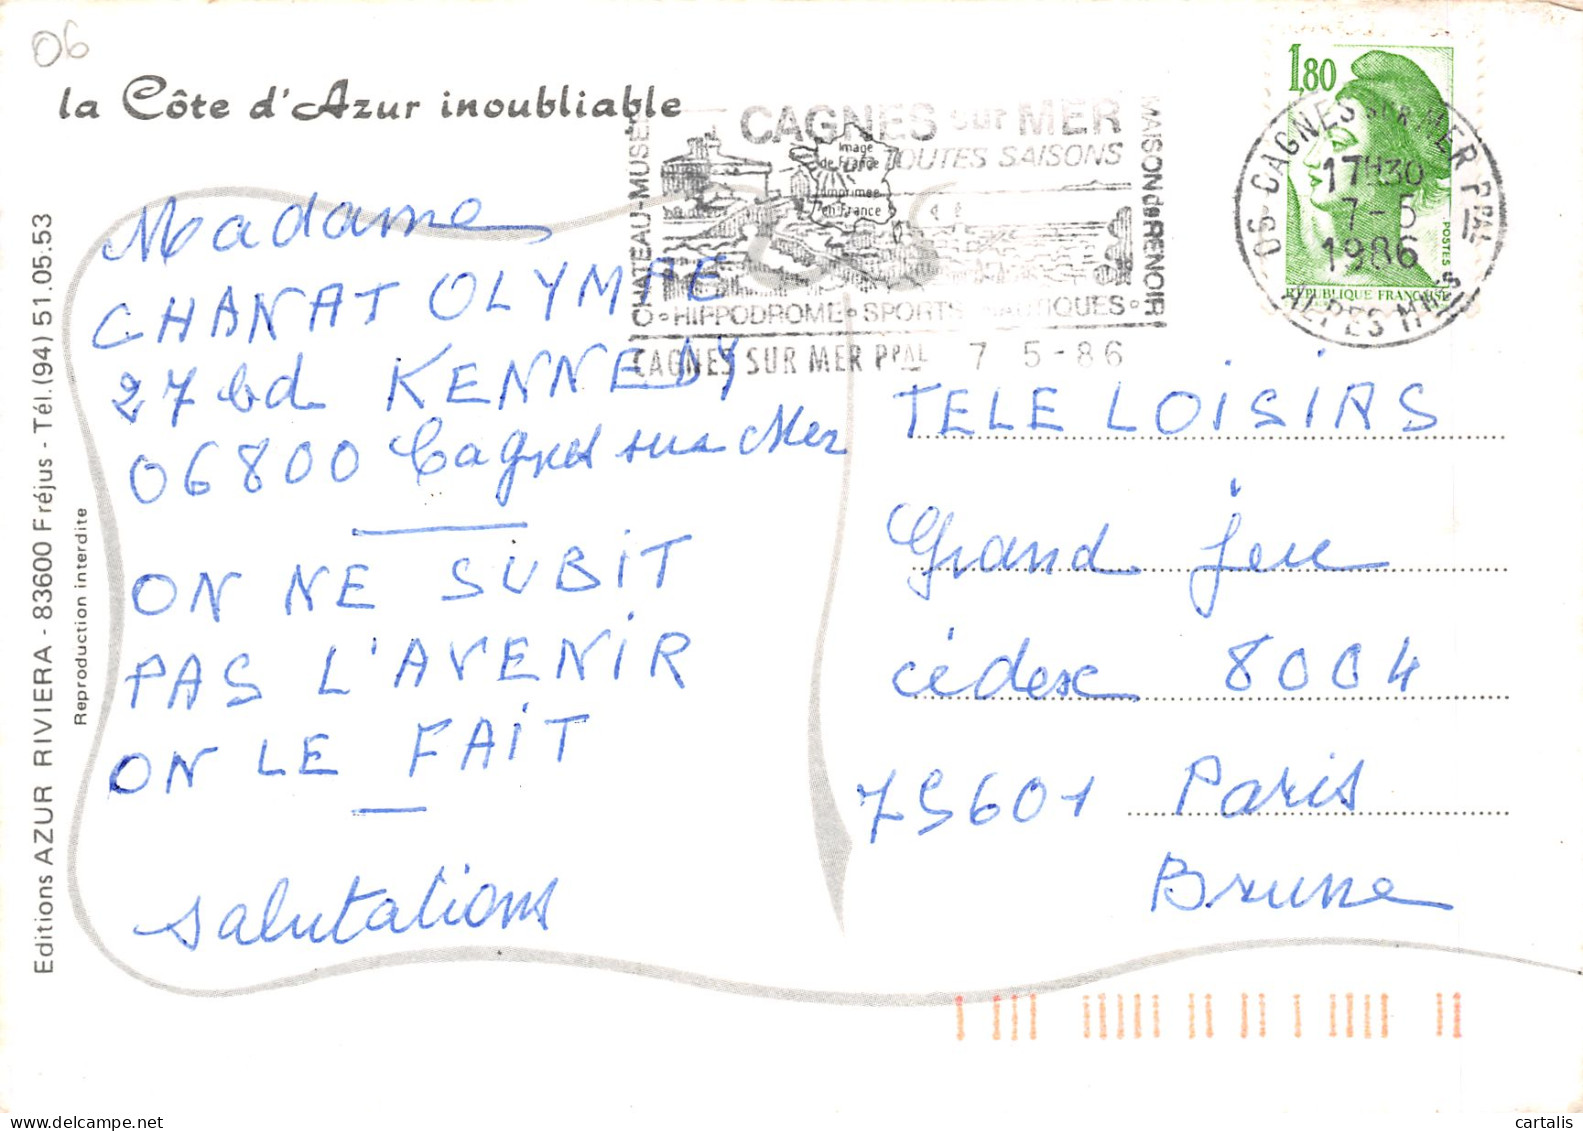 06
la Côte d'Azur inoubliable
CAGNES sur MER
TOUTES SAISONS
CHATEAU-MUSEE
MAISON de RENOIR
Image
de France
imprimée
en France
HIPPODROME • SPORTS NAUTIQUES •
CAGNES SUR MER PPAL 7 5-86
1,80
POSTES
REPUBLIQUE FRANÇAISE
06-CAGNES SUR MER PPAL
17H30
7-5
1986
ALPES MMES
Madame
CHANAT OLYMPE
27 bd KENNEDY
06800 Cagnes sur Mer
ON NE SUBIT
PAS L'AVENIR
ON LE FAIT
Salutations
TELE LOISIRS
Grand jeu
cédex 8004
75601 Paris
Brune
Editions AZUR RIVIERA - 83600 Fréjus - Tél. (94) 51.05.53
Reproduction interdite
cartalis